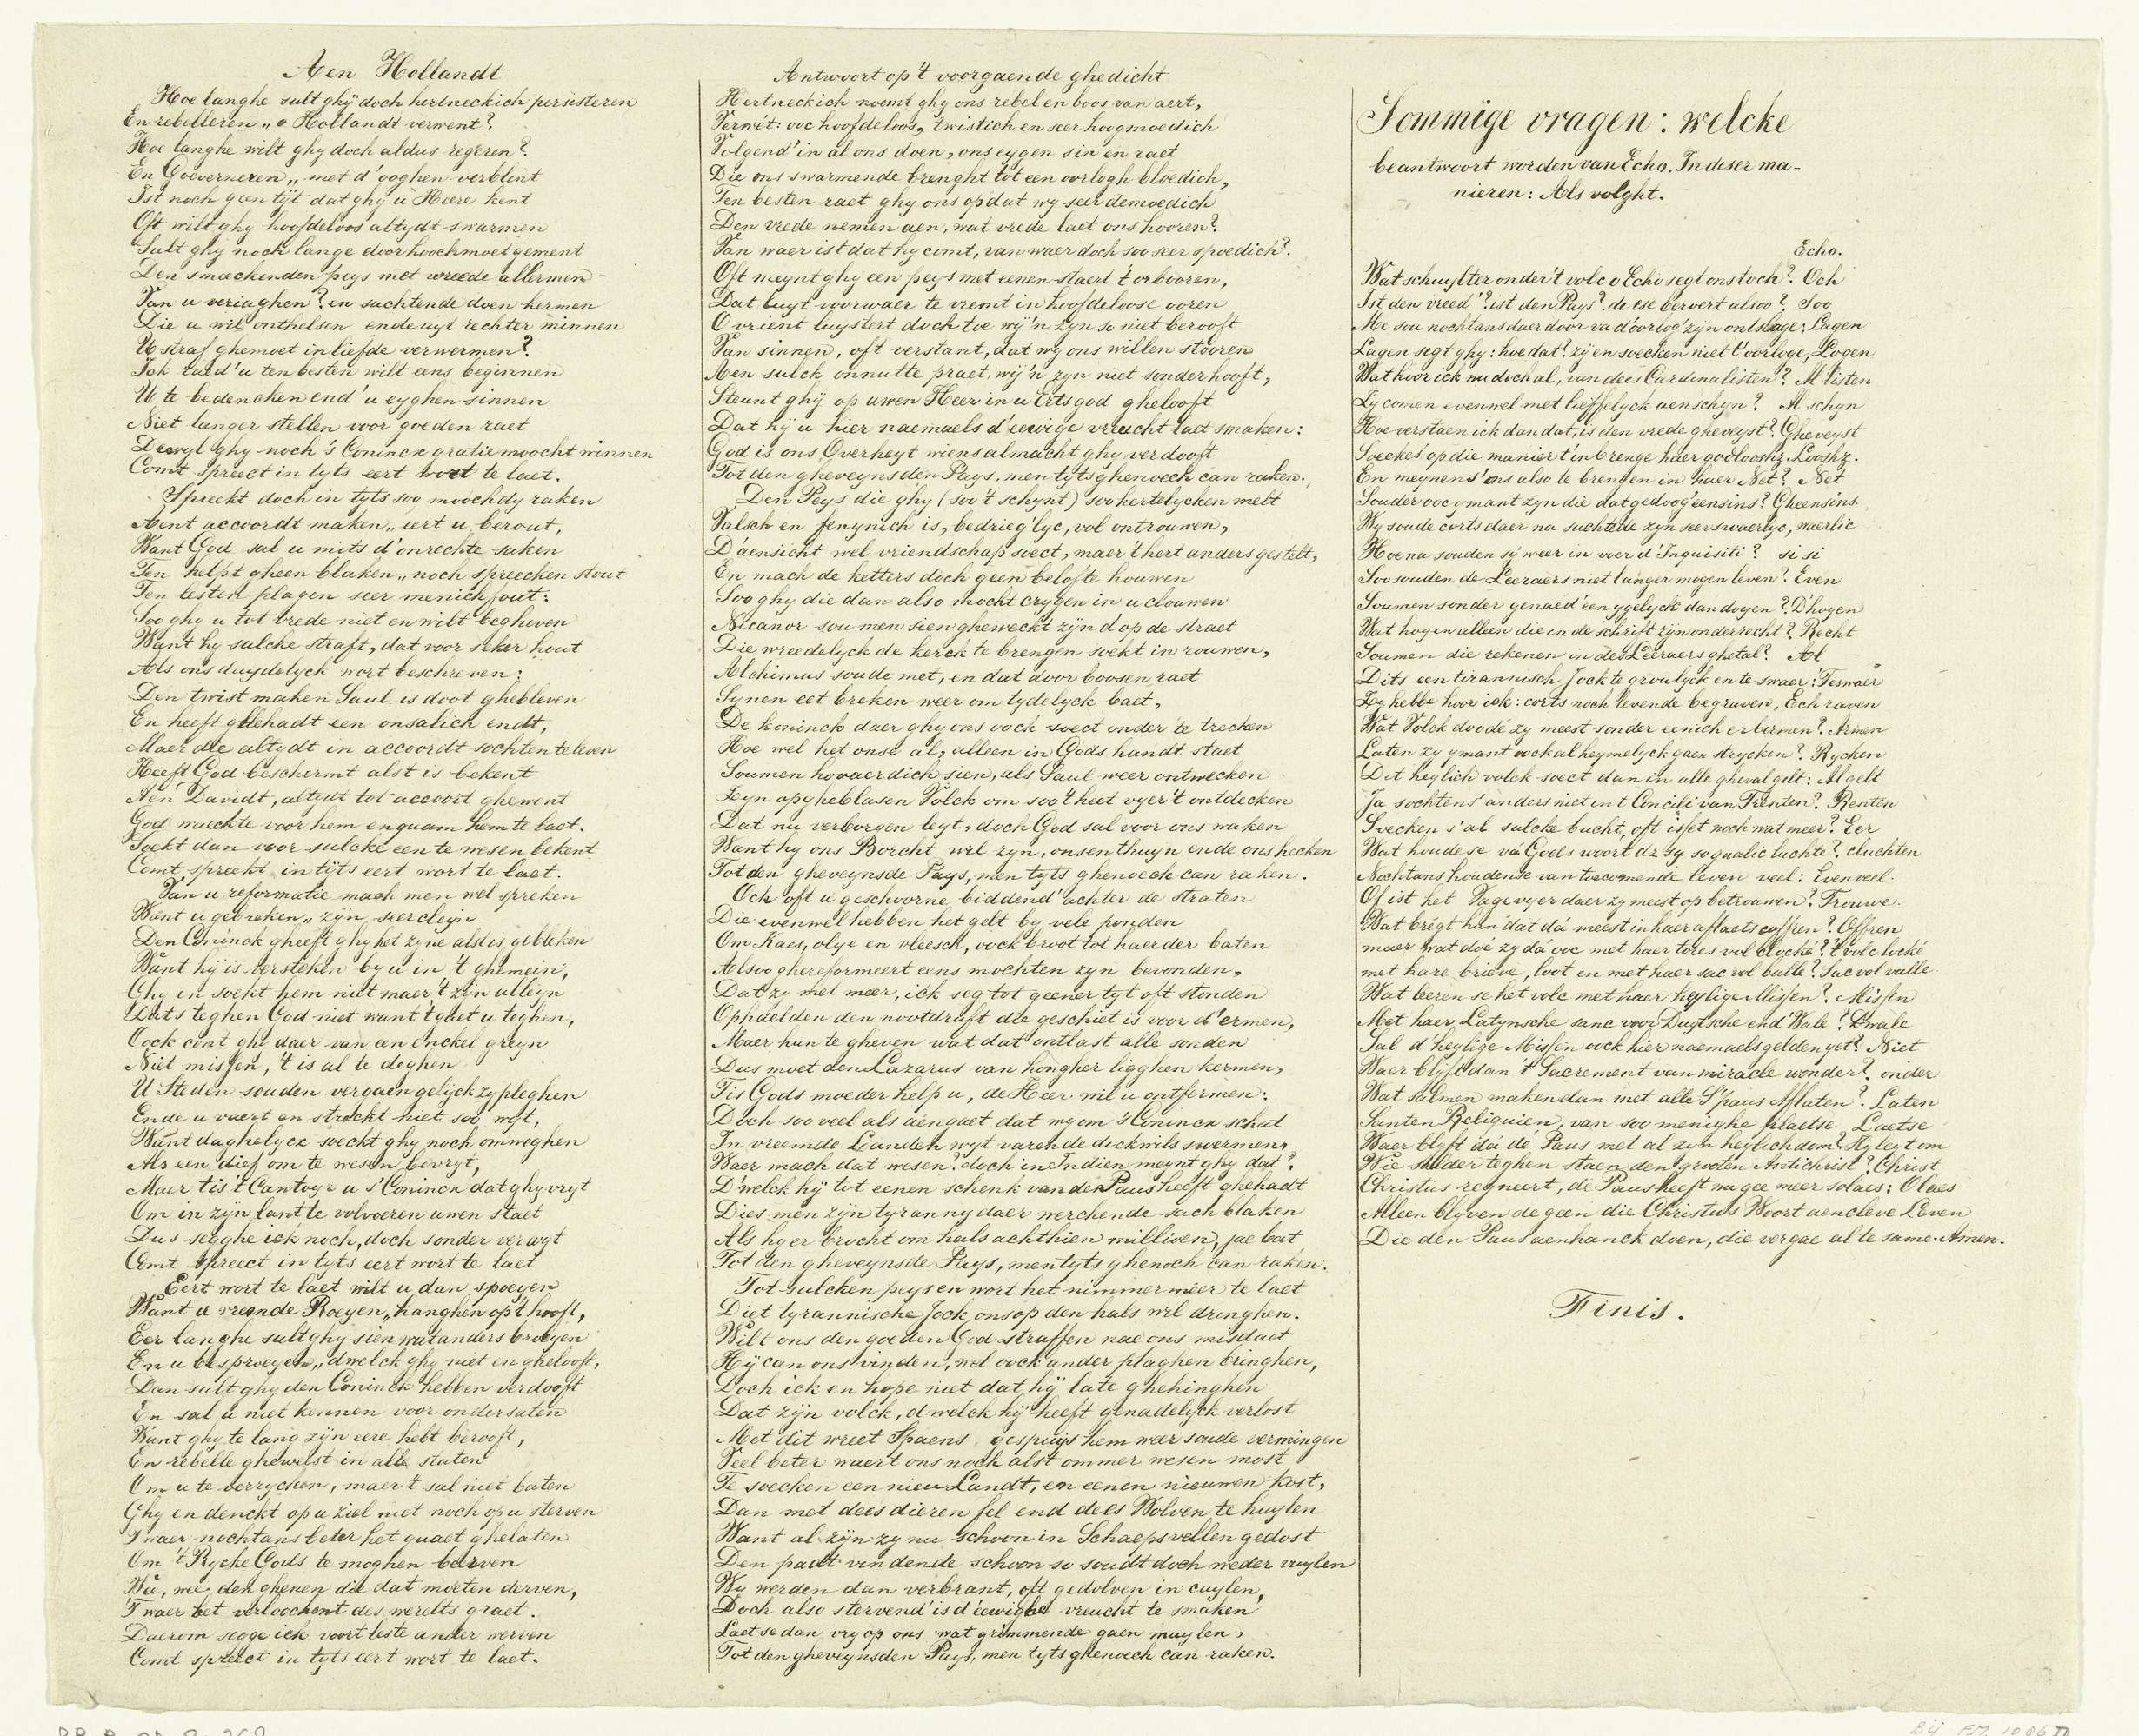 Aen Hollandt
Hoe langhe sult ghÿ doch hertneckich persisteren
En rebelleren „ o Hollandt verwent?
Hoe langhe wilt ghy doch aldus regeren?
En Goeverneren „ met d' ooghen verblint
Ist noch geen tÿt dat ghy u Heere kent
Oft wilt ghy hoofdeloos altydt swarmen
Sult ghÿ noch lange door hoochmoet gement
Den smaeckenden peys met wreede allermen
Van u veriaghen? en suchtende doen kermen
Die u wil onthelsen ende uyt rechter minnen
U straf ghemoet in liefde verwermen?
Ick raed' u ten besten wilt eens beginnen
U te bedencken end' u eyghen sinnen
Niet langer stellen voor goeden raet
Dewyl ghy noch 's Conincx gratie moocht winnen
Comt spreect in tyts eert wort te laet.
Spreekt doch in tyts soo moochdy raken
Aent accoordt maken „ eert u berout,
Want God sal u mits d'onrechte saken
Ten helpt gheen blaken „ noch spreecken stout
Ten lesten plagen seer menichfout:
Soo ghy u tot vrede niet en wilt begheven
Want hy sulcke straft, dat voor seker hout
Als ons duydelyck wort beschreven:
Den twist maken Saul is doot ghebleven
En heeft ghehadt een onsalich endt,
Maer die altydt in accoordt sochten te leven
Heeft God beschermt alst is bekent
Aen Davidt, altydt tot accoort ghewent
God waechte voor hem en quam hem te baet.
Soekt dan voor sulcke een te wesen bekent
Comt spreeckt in tÿts eert wort te laet.
Van u reformatie mach men wel spreken
Want u gebreken „ zÿn seer cleyn
Den Coninck gheeft ghy het zyne alst is gebleken
Want hÿ is versteken by u in 't ghemein,
Ghy en soekt hem niet maer 't zÿn alleyn
Dats teghen God niet want tgaet u teghen,
Oock cont ghy daer van een enckel greyn
Niet missen, 't is al te deghen
U Steden souden vergaen gelÿck zy pleghen
Ende u vaert en streckt niet soo wÿt,
Want daghelycx soeckt ghy noch omweghen
Als een dief om te wesen bevryt,
Maer tis 't Cantoor u s' Conincx dat ghy vryt
Om in zyn lant te volvoeren uwen staet
Dus segghe ick noch, doch sonder verwyt
Comt spreect in tyts eert wort te laet
Eert wort te laet wilt u dan spoeyen
Want u vreende Roeyen „ hanghen op 't hooft,
Eer langhe sult ghy sien wat anders broeyen
En u besproeyen „ dwelck ghy niet en ghelooft,
Dan sult ghy den Coninck hebben verdooft
En sal u niet kennen voor ondersaten
Want ghy te lang zÿn eere hebt berooft,
En rebelle gheweest in alle staten
Om u te verrycken, maer t sal niet baten
Ghy en denckt op u ziel niet noch op u sterven
T waer nochtans beter het quaet ghelaten
Om 't Rycke Gods te moghen beerven
Wee, wee, den ghenen die dat moeten derven,
T waer bet verloochent des werelts graet.
Daerom segge ick voort leste ander werven
Comt spreect in tyts eert wort te laet.
Antwoort op 't voorgaende ghedicht
Hertneckich noemt ghy ons rebel en boos van aert,
Verwēt: ooc hoofdeloos, twistich en seer hoogmoedich
Volgend' in al ons doen, ons eygen sin en raet
Die ons swarmende brenght tot een oorlogh bloedich,
Ten besten raet ghy ons op dat wy seer demoedich
Den vrede nemen aen, wat vrede laet ons hooren?
Van waer ist dat hy comt, van waer doch soo seer spoedich?
Oft meynt ghy een peys met eenen staert 't orbooren,
Dat luyt voorwaer te vremt in hoofdeloose ooren
O vrient luystert doch toe wÿ 'n zyn so niet berooft
Van sinnen, oft verstant, dat wy ons willen stooren
Aen sulck onnutte praet, wÿ 'n zyn niet sonder hooft,
Steunt ghÿ op uwen Heer in u Ertsgod ghelooft
Dat hÿ u hier naemaels d'eewige vreucht laet smaken:
God is ons Overheyt wiens almacht ghy verdooft
Tot den gheveynsden Pays, men tyts ghenoech can raken.
Den Peys die ghy (soo 't schynt) soo hertelycken melt
Valsch en fenynich is, bedrieg'lyc, vol ontrouwen,
D'aensicht wel vriendschap soect, maer 't hert anders gestelt,
En mach de ketters doch geen belofte houwen
Soo ghy die dan also mocht crygen in u clouwen
Nicanor sou men sien gheweckt zÿnd op de straet
Die wreedelyck de kerck te brengen soekt in rouwen,
Alchimus soude met, en dat door boosen raet
Synen eet breken weer om tydelyck baet,
De koninck daer ghy ons oock soect onder te trecken
Hoe wel het onse al, alleen in Gods handt staet
Soumen hovaerdich sien, als Saul weer ontwecken
Zyn opgheblasen Volck om soo 't heet vyer 't ontdecken
Dat nu verborgen leyt, doch God sal voor ons waken
Want hy ons Borcht wil zyn, onsen thuyn ende ons hecken
Tot den gheveynsde Pays, men tyts ghenoech can raken.
Ock oft u geschoorne biddend' achter de straten
Die evenwel hebben het gelt by vele ponden
Om Kaes, olye en vleesch, oock broot tot haerder baten
Alsoo ghereformeert eens mochten zyn bevonden,
Dat zy met meer, ick seg tot geener tyt oft stonden
Ophaelden den nootdruft die geschiet is voor d'ermen,
Maer hun te gheven wat dat ontlast alle sonden
Dus moet den Lazarus van hongher ligghen kermen,
Tis Gods moeder help u, de Heer wil u ontfermen:
Doch soo veel als aengaet dat wy om 's Conincx schat
In vreemde Landen wyt varende dickmils swermen,
Waer mach dat wesen? doch in Indien meynt ghy dat?
D'welck hÿ tot eenen schenk van den Paus heeft ghehadt
Dies men zÿn tyranny daer werckende sach blaken
Als hy er brocht om hals achthien millioen, jae bat
Tot den gheveynsde Pays, men tyts ghenoch can raken.
Tot sulcken peys en wort het nimmermeer te laet
Diet tyrannische Jock ons op den hals wil dringhen.
Wilt ons den goeden God straffen nae ons misdaet
Hÿ can ons vinden, wel oock ander plaghen bringhen,
Doch ick en hope niet dat hÿ late ghehinghen
Dat zÿn volck, d welck hÿ heeft genadelyck verlost
Met dit wreet Spaens gespuys hem weer soude vermingen
Veel beter waert ons noch alst ommer wesen most
Te soecken een nieu Landt, en eenen nieuwen kost,
Dan met dees dieren fel end dees Wolven te huylen
Want al zÿn zy nu schoon in Schaepsvellen gedost
Den padt vindende schoon so soudt doch weder vuylen
Wy werden dan verbrant, oft gedolven in cuylen,
Doch also stervend' is d'eewighe vreucht te smaken
Laet se dan vry op ons wat grimmende gaen muylen,
Tot den gheveynsden Pays, men tyts ghenoech can raken.
Sommige vragen: welcke
beantwoort worden van Echo. In deser ma-
nieren: Als volght.
Echo.
Wat schuylter onder 't volc o Echo segt ons toch? Och
Ist den vreed'? ist den Pays? de ese beroert alsoo? Soo
Me sou nochtans daer door va d'oorlog' zyn ontslage; Lagen
Lagen segt ghy: hoe dat? zy en soecken niet t'oorloge; Logen
Wat hoor ick nu doch al, van dees Cardinalisten? Al listen
Zy comen evenwel met lieffelyck aenschyn? Al schyn
Hoe verstaen ick dan dat, is den vrede gheveyst? Gheveyst
Soeckēs op die manier t'inbrenge haer godloosh₃. Looshz.
En meynen s'ons also te brengen in haer Net? Net
Souder ooc ymant zyn die dat gedoog'eensins? Gheensins
Wy soude corts daer na suchtēde zyn seer swaerlyc, waerlic
Hoe na souden sy weer in voer d'Inquisiti? si si
Soo souden de Leeraers niet langer mogen leven? Even
Soumen sonder genaed' een ygelyck dan doyen? D'hoyen
Wat hoyen alleen die in de schrift zÿn onderrecht? Recht
Soumen die rekenen in des Leeraers ghetal? Al
Dits een tirannisch Jock te grouwlyck en te swaer: Teswaer
Zy hebbē hoor ick: corts noch levende begraven, Ech raven
Wat Volck doodē zy meest sonder eenich erbermen? Armen
Laten zy ymant oock al heymelyck gaen strycken? Rycken
Dit heylich volck soect dan in alle gheval gelt: Al gelt
Ja sochtens' anders niet in t Concili van Trenten? Renten
Soecken s'al sulcke bucht, oft isset noch wat meer? Eer
Wat houdese vā Gods woort dz sy so qualic luchte? cluchten
Nochtans houdense van toecomende leven veel: Even veel.
Of ist het Vagevyer daer zy meest op betrouwen? Trouwe.
Wat brēgt hun dat dā meest in haer aflaets coffren? Offren
maer wat doē zy dā ooc met haer tores vol clockē? 't volc lockē
met hare brieve, loot en met haer sac vol bulle? Sac vol vulle
Wat leeren se het volc met haer heylige Missen? Missen
Met haer Latynsche sanc voor Duytsche end' Wale? Dwale
Sal d' heylige Missen oock hier naemaels gelden yet? Niet
Waer blyft dan 't Sacrement van miracle wonder? onder
Wat salmen maken dan met alle S'paus Aflaten? Laten
Santen Reliquien, van soo menighe plaetse Laetse
Waer blyft dā dē Paus met al zyn heylichdom? Hy leyt om
Wie salder teghen staen den grooten Antichrist? Christ
Christus regneert, de Paus heeft nu gee meer solaes: Olaes
Alleen blyven de geen die Christus Woort aencleve Leven
Die den Paus aenhanck doen, die vergae al te same. Amen.
Finis.